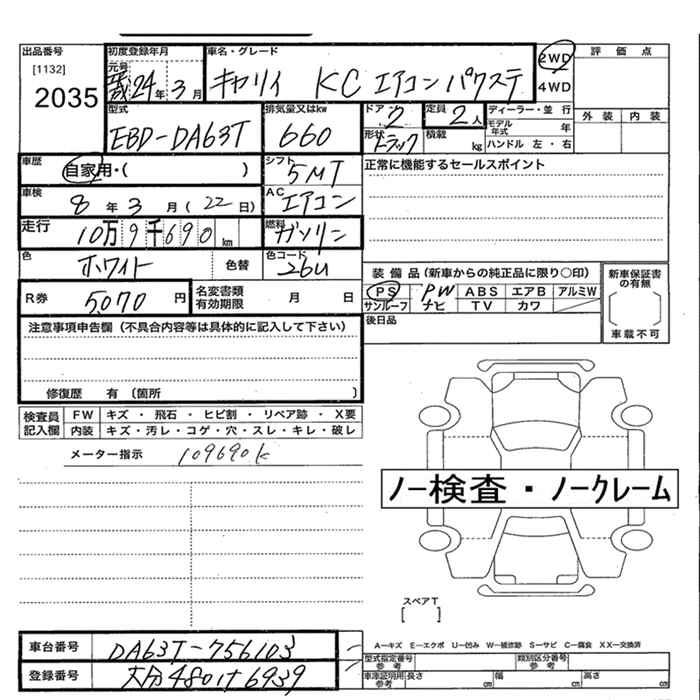 出品番号 初度登録年月 車名・グレード 2WD 評価点
[1132] 元号 平成24年3月 キャリイ KC エアコン パワステ 4WD
2035
型式 排気量又はkw ドア 定員 ディーラー・並行 外装 内装
EBD-DA63T 660 2 2人 モデル年式 年
形状 トラック 積載 kg ハンドル 左・右
車歴 自家用・( ) シフト 5MT 正常に機能するセールスポイント
車検 8年3月(22日) AC エアコン
走行 10万9千690km 燃料 ガソリン
色 ホワイト 色替 色コード 26U
装備品(新車からの純正品に限り○印) 新車保証書の有無
R券 5,070円 名変書類有効期限 月 日
PS PW ABS エアB アルミW
サンルーフ ナビ TV カワ 車載不可
注意事項申告欄(不具合内容等は具体的に記入して下さい) 後日品
修復歴 有 〔箇所 〕
検査員記入欄 FW キズ・飛石・ヒビ割・リペア跡・X要
内装 キズ・汚レ・コゲ・穴・スレ・キレ・破レ
メーター指示 109690k
ノー検査・ノークレーム
スペアT
[ ]
車台番号 DA63T-756103
A−キズ E−エクボ U−凹み W−補修跡 S−サビ C−腐食 XX−交換済
登録番号 大分480け6939
型式指定番号 参考 類別区分番号 参考
車庫証明用 参考 長さ cm 幅 cm 高さ cm